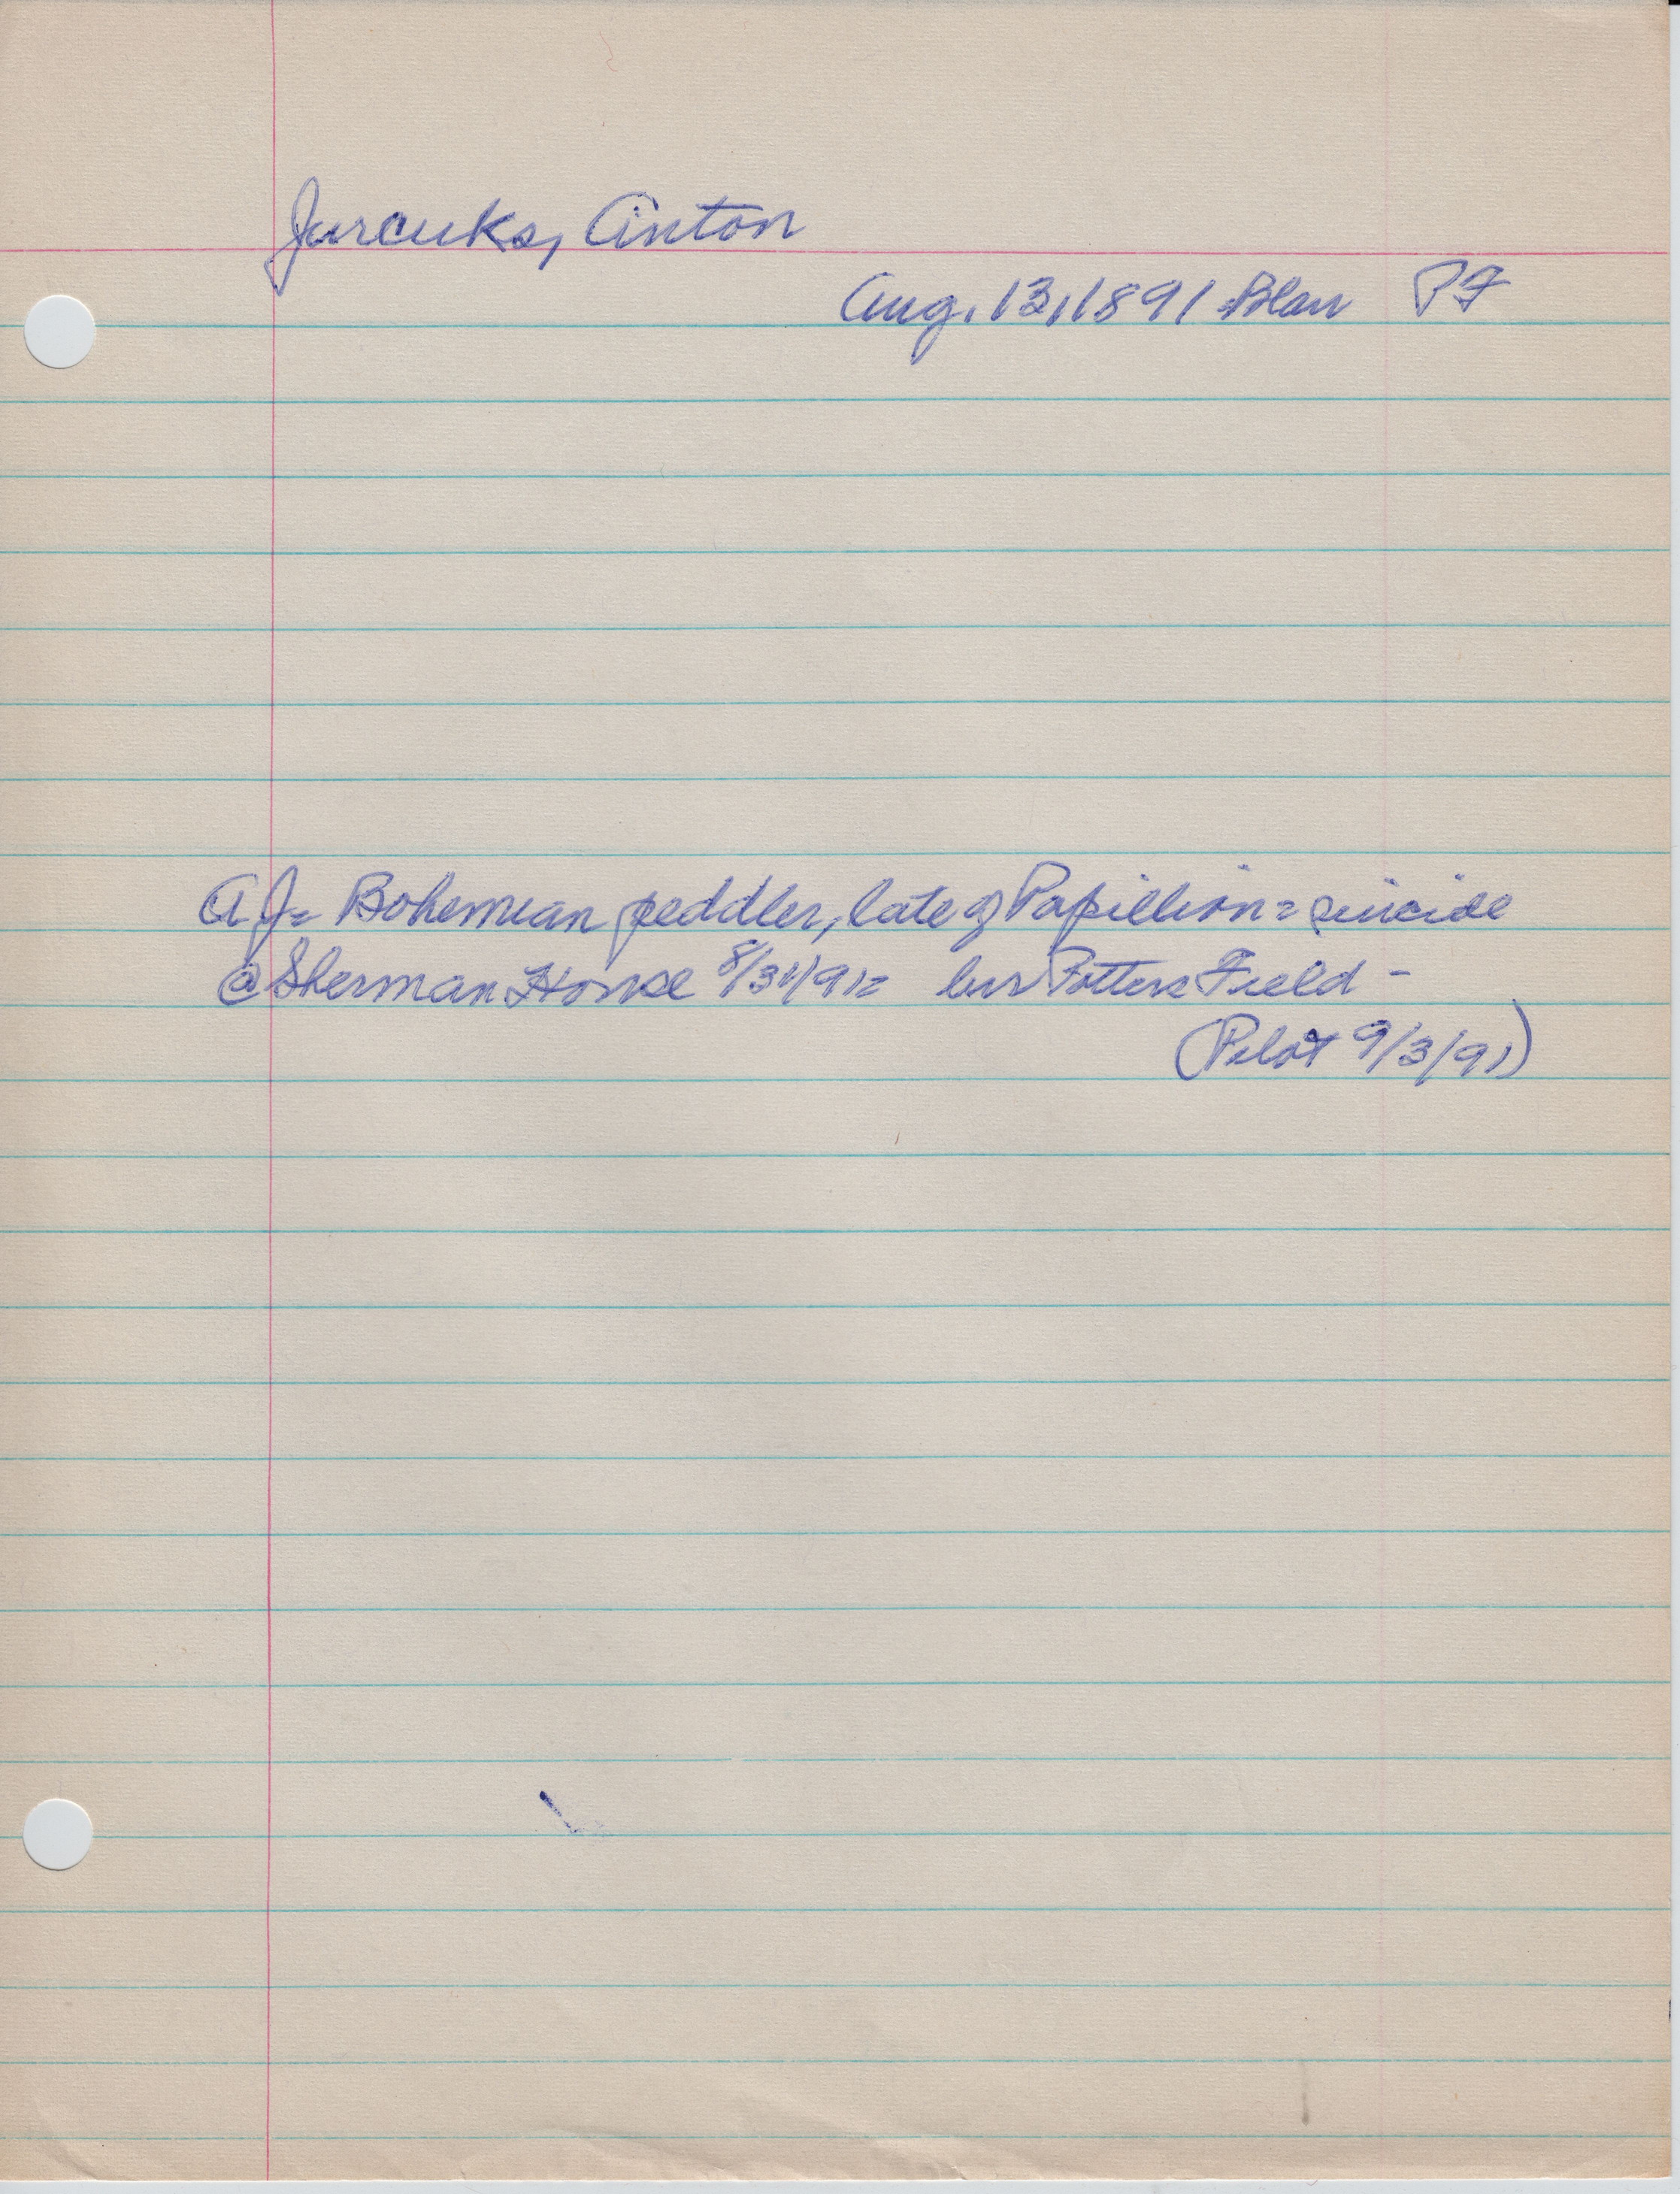 Jurcuks, Anton
Aug. 13, 1891 Blair PF
AJ= Bohemian peddler, late of Papillion= suicide
@ Sherman House 8/31/91= bur Potters Field -
(Pilot 9/3/91)